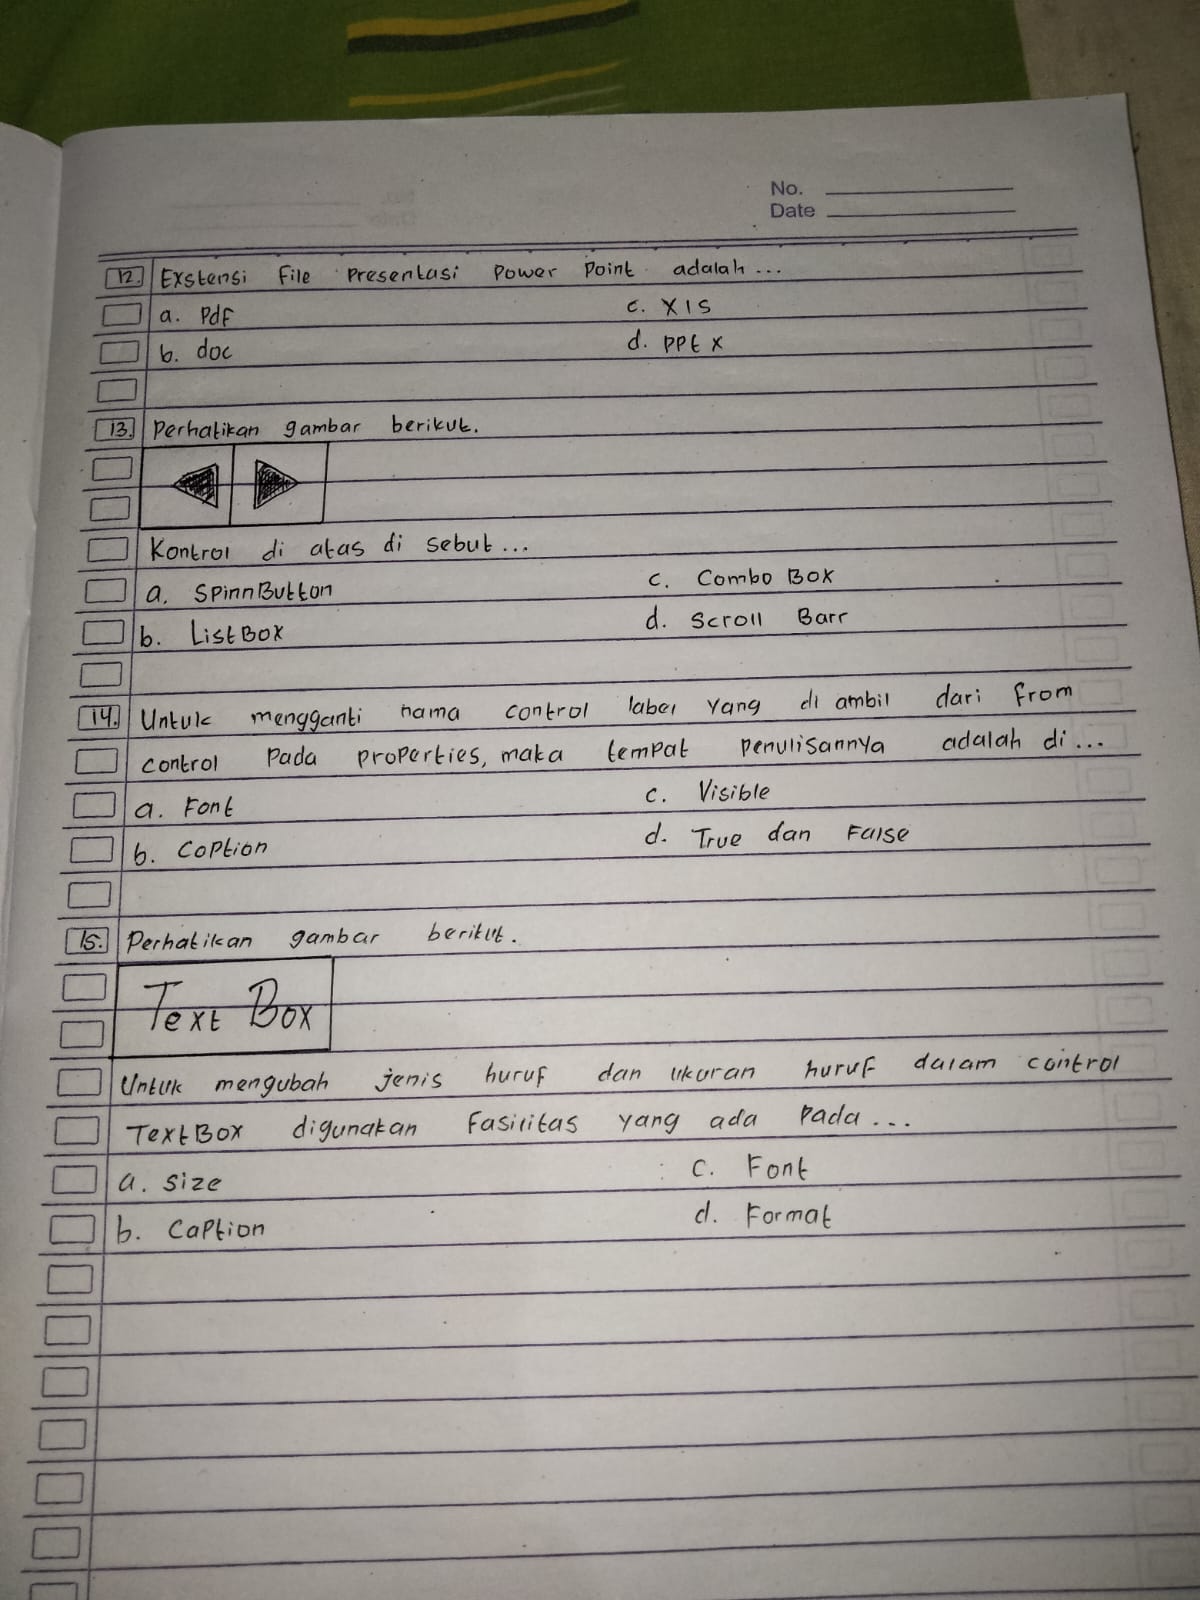 No.
Date
12. Exstensi File Presentasi Power Point adalah...
a. Pdf
c. XIS
b. doc
d. pptx
13. Perhatikan gambar berikut.
Kontrol di atas di sebut...
a. SpinnButton
c. Combo Box
b. ListBox
d. Scroll Barr
14. Untuk mengganti nama control label yang di ambil dari from
control pada properties, maka tempat penulisannya adalah di...
a. Font
c. Visible
b. Coption
d. True dan False
15. Perhatikan gambar berikut.
Text Box
Untuk mengubah jenis huruf dan ukuran huruf dalam control
TextBox digunakan Fasilitas yang ada pada...
a. size
c. Font
b. Caption
d. Format